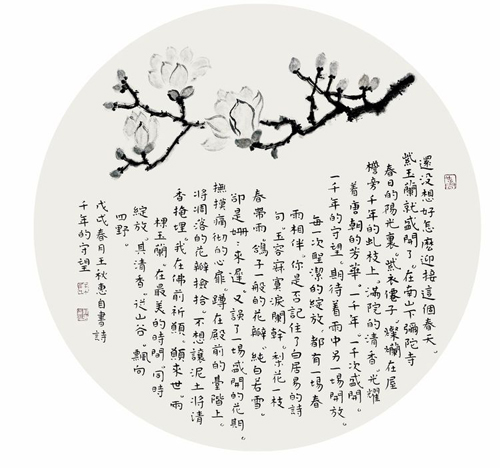 還没想好怎麽迎接這個春天。
紫玉蘭就盛開了。在南山下彌陀寺
春日的陽光裏。紫衣僊子燦爛在屋
檐旁千年的虬枝上。滿院的清香。光耀
着唐朝的芳華。一千年。一千次盛開。
一千年的守望。期待着雨中另一場開放。
每一次聖潔的綻放。都有一場春
雨相伴。你是否記住了白居易的詩
句。玉容寂寞淚闌幹。梨花一枝
春帶雨。鴿子一般的花瓣。純白若雪。
卻是姍:來遲。又誤了一場盛開的花期。
撫摸痛彻的心扉。蹲在殿前的臺階上。
將凋落的花瓣撿拾。不想讓泥土將清
香掩埋。我在佛前祈願。願來世。兩
棵玉蘭。在最美的時間。同時
綻放。真清香。從山谷。飄向
四野。
戊戌春月王秋惠自書詩
千年的守望